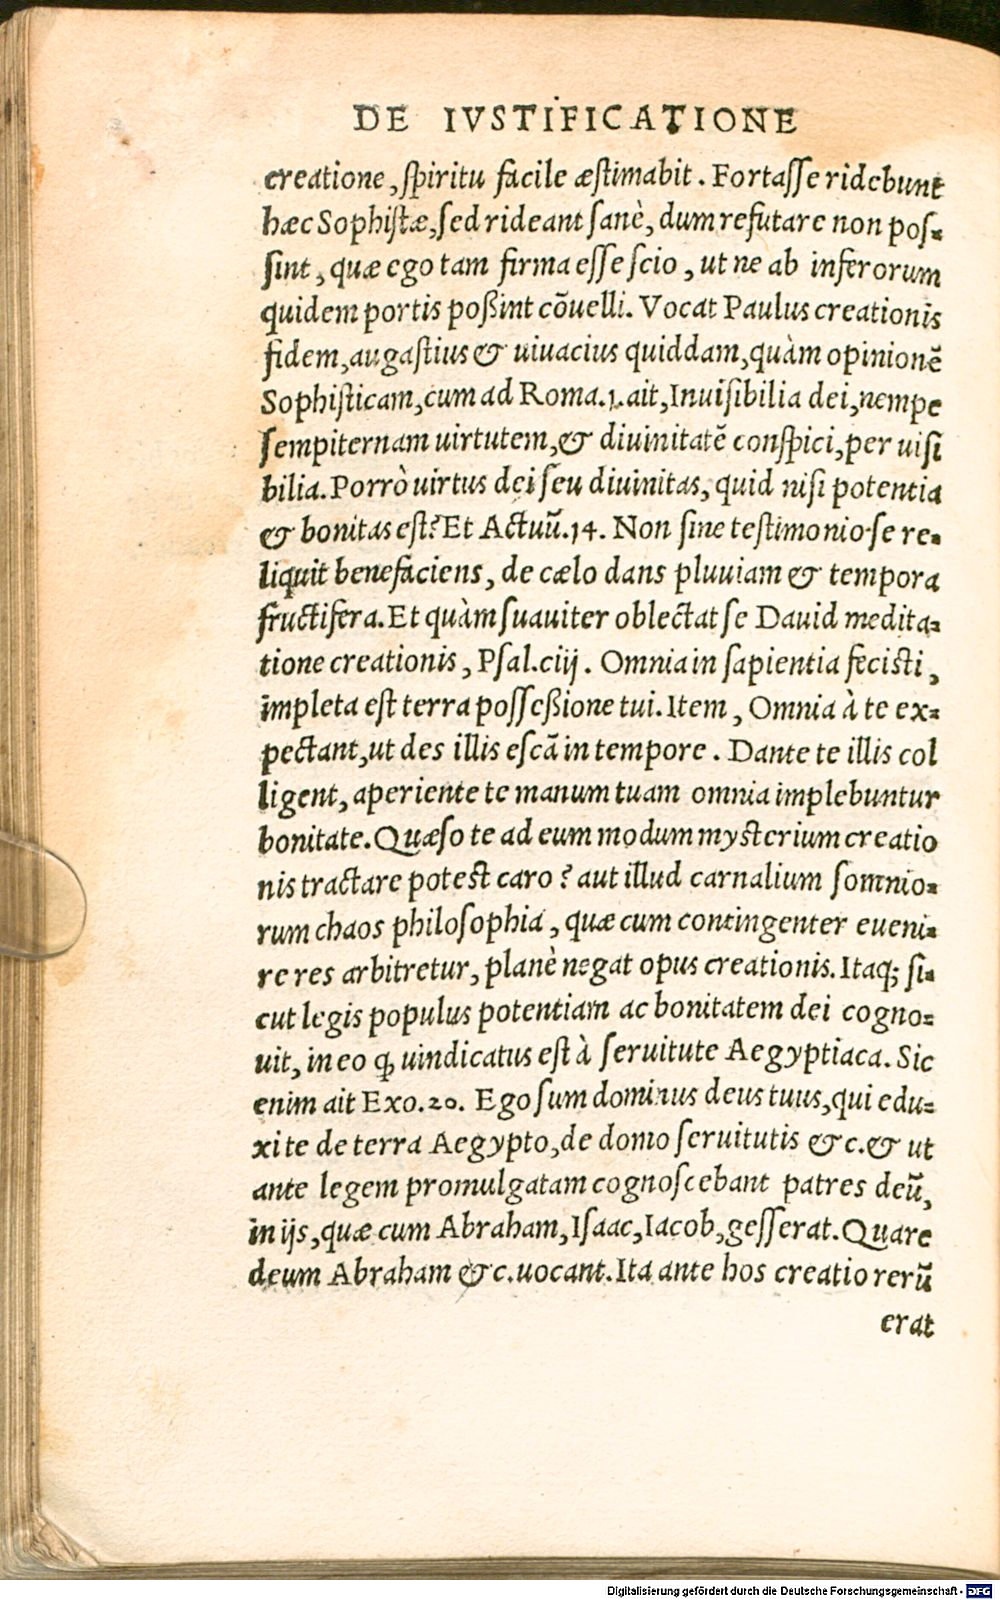 DE IVSTIFICATIONE
creatione, spiritu facile æstimabit. Fortasse ridebunt
hæc Sophistæ, sed rideant sanè, dum refutare non pos-
sint, quæ ego tam firma esse scio, ut ne ab inferorum
quidem portis poßint cõuelli. Vocat Paulus creationis
fidem, augastius & uiuacius quiddam, quàm opinionẽ
Sophisticam, cum ad Roma.1. ait, Inuisibilia dei, nempe
sempiternam uirtutem, & diuinitatẽ conspici, per uisi
bilia. Porrò uirtus dei seu diuinitas, quid nisi potentia
& bonitas est? Et Actuũ.14. Non sine testimonio se re-
liquit benefaciens, de cælo dans pluuiam & tempora
fructifera. Et quàm suauiter oblectat se Dauid medita-
tione creationis, Psal.ciij. Omnia in sapientia fecisti,
impleta est terra posseßione tui. Item, Omnia à te ex-
pectant, ut des illis escã in tempore. Dante te illis col
ligent, aperiente te manum tuam omnia implebuntur
bonitate. Quæso te ad eum modum mysterium creatio
nis tractare potest caro? aut illud carnalium somnio-
rum chaos philosophia, quæ cum contingenter eueni-
re res arbitretur, planè negat opus creationis. Itaq; si-
cut legis populus potentiam ac bonitatem dei cogno-
uit, in eo ꝙ uindicatus est à seruitute Aegyptiaca. Sic
enim ait Exo.20. Ego sum dominus deus tuus, qui edu-
xi te de terra Aegypto, de domo seruitutis &c. & ut
ante legem promulgatam cognoscebant patres deũ,
in ijs, quæ cum Abraham, Isaac, Iacob, gesserat. Quare
deum Abraham &c. uocant. Ita ante hos creatio rerũ
erat
Digitalisierung gefördert durch die Deutsche Forschungsgemeinschaft - DFG